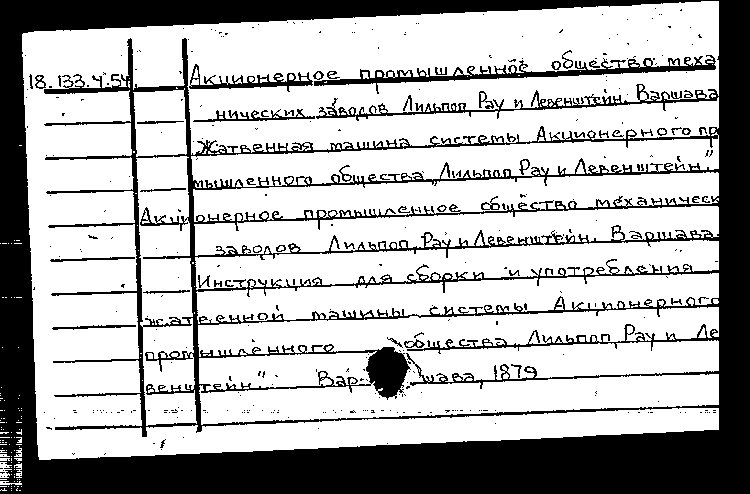 18.133.4.54. Акционерное промышленное общество меха-
нических заводов Лильпоп, Рау и Левенштейн. Варшава
Жатвенная машина системы Акционерного пр
мышленного общества „Лильпоп, Рау и Левенштейн."
Акционерное промышленное общество механическ
заводов Лильпоп, Рау и Левенштейн. Варшава.
Инструкция для сборки и употребления
жатвенной машины системы Акционерного
промышленного общества „Лильпоп, Рау и Ле
венштейн". Варшава, 1879